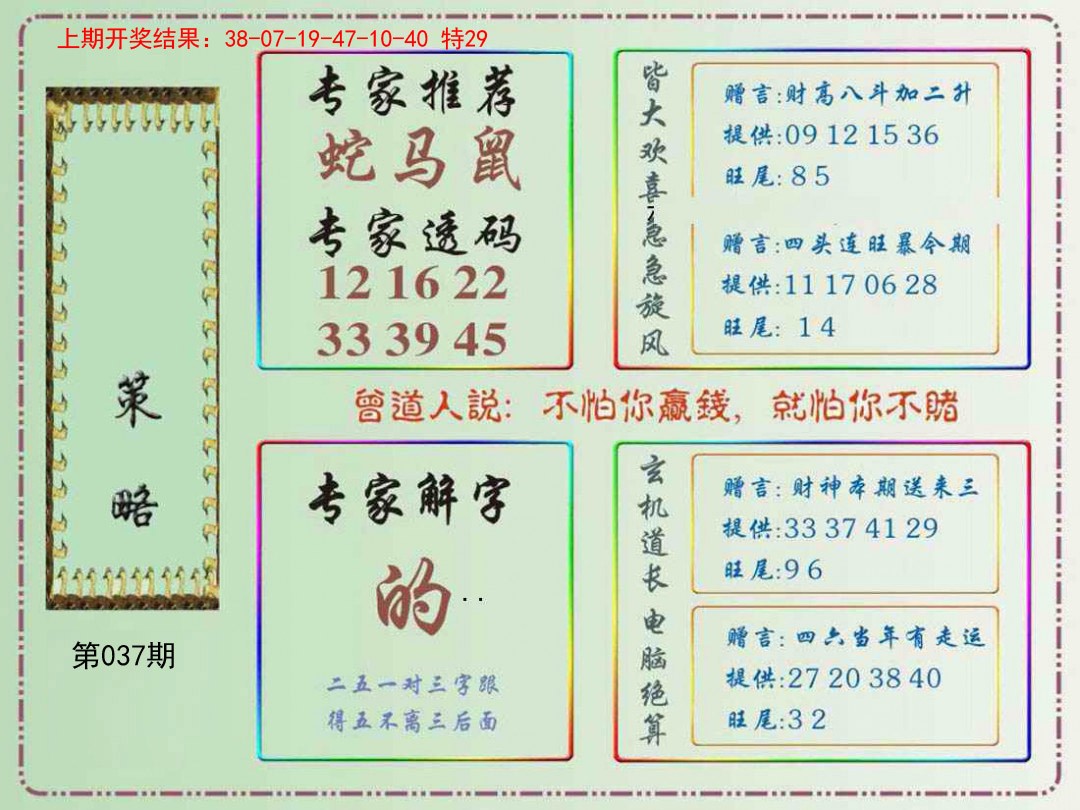 上期开奖结果：38-07-19-47-10-40 特29
策略
第037期
专家推荐
蛇马鼠
专家透码
12 16 22
33 39 45
皆大欢喜
赠言:财高八斗加二升
提供:09 12 15 36
旺尾: 8 5
急急旋风
赠言:四头连旺暴今期
提供:11 17 06 28
旺尾: 1 4
曾道人説：不怕你贏錢，就怕你不賭
专家解字
的..
二五一对三字跟
得五不离三后面
玄机道长
赠言: 财神本期送来三
提供:33 37 41 29
旺尾:9 6
电脑绝算
赠言: 四六当年有走运
提供:27 20 38 40
旺尾:3 2